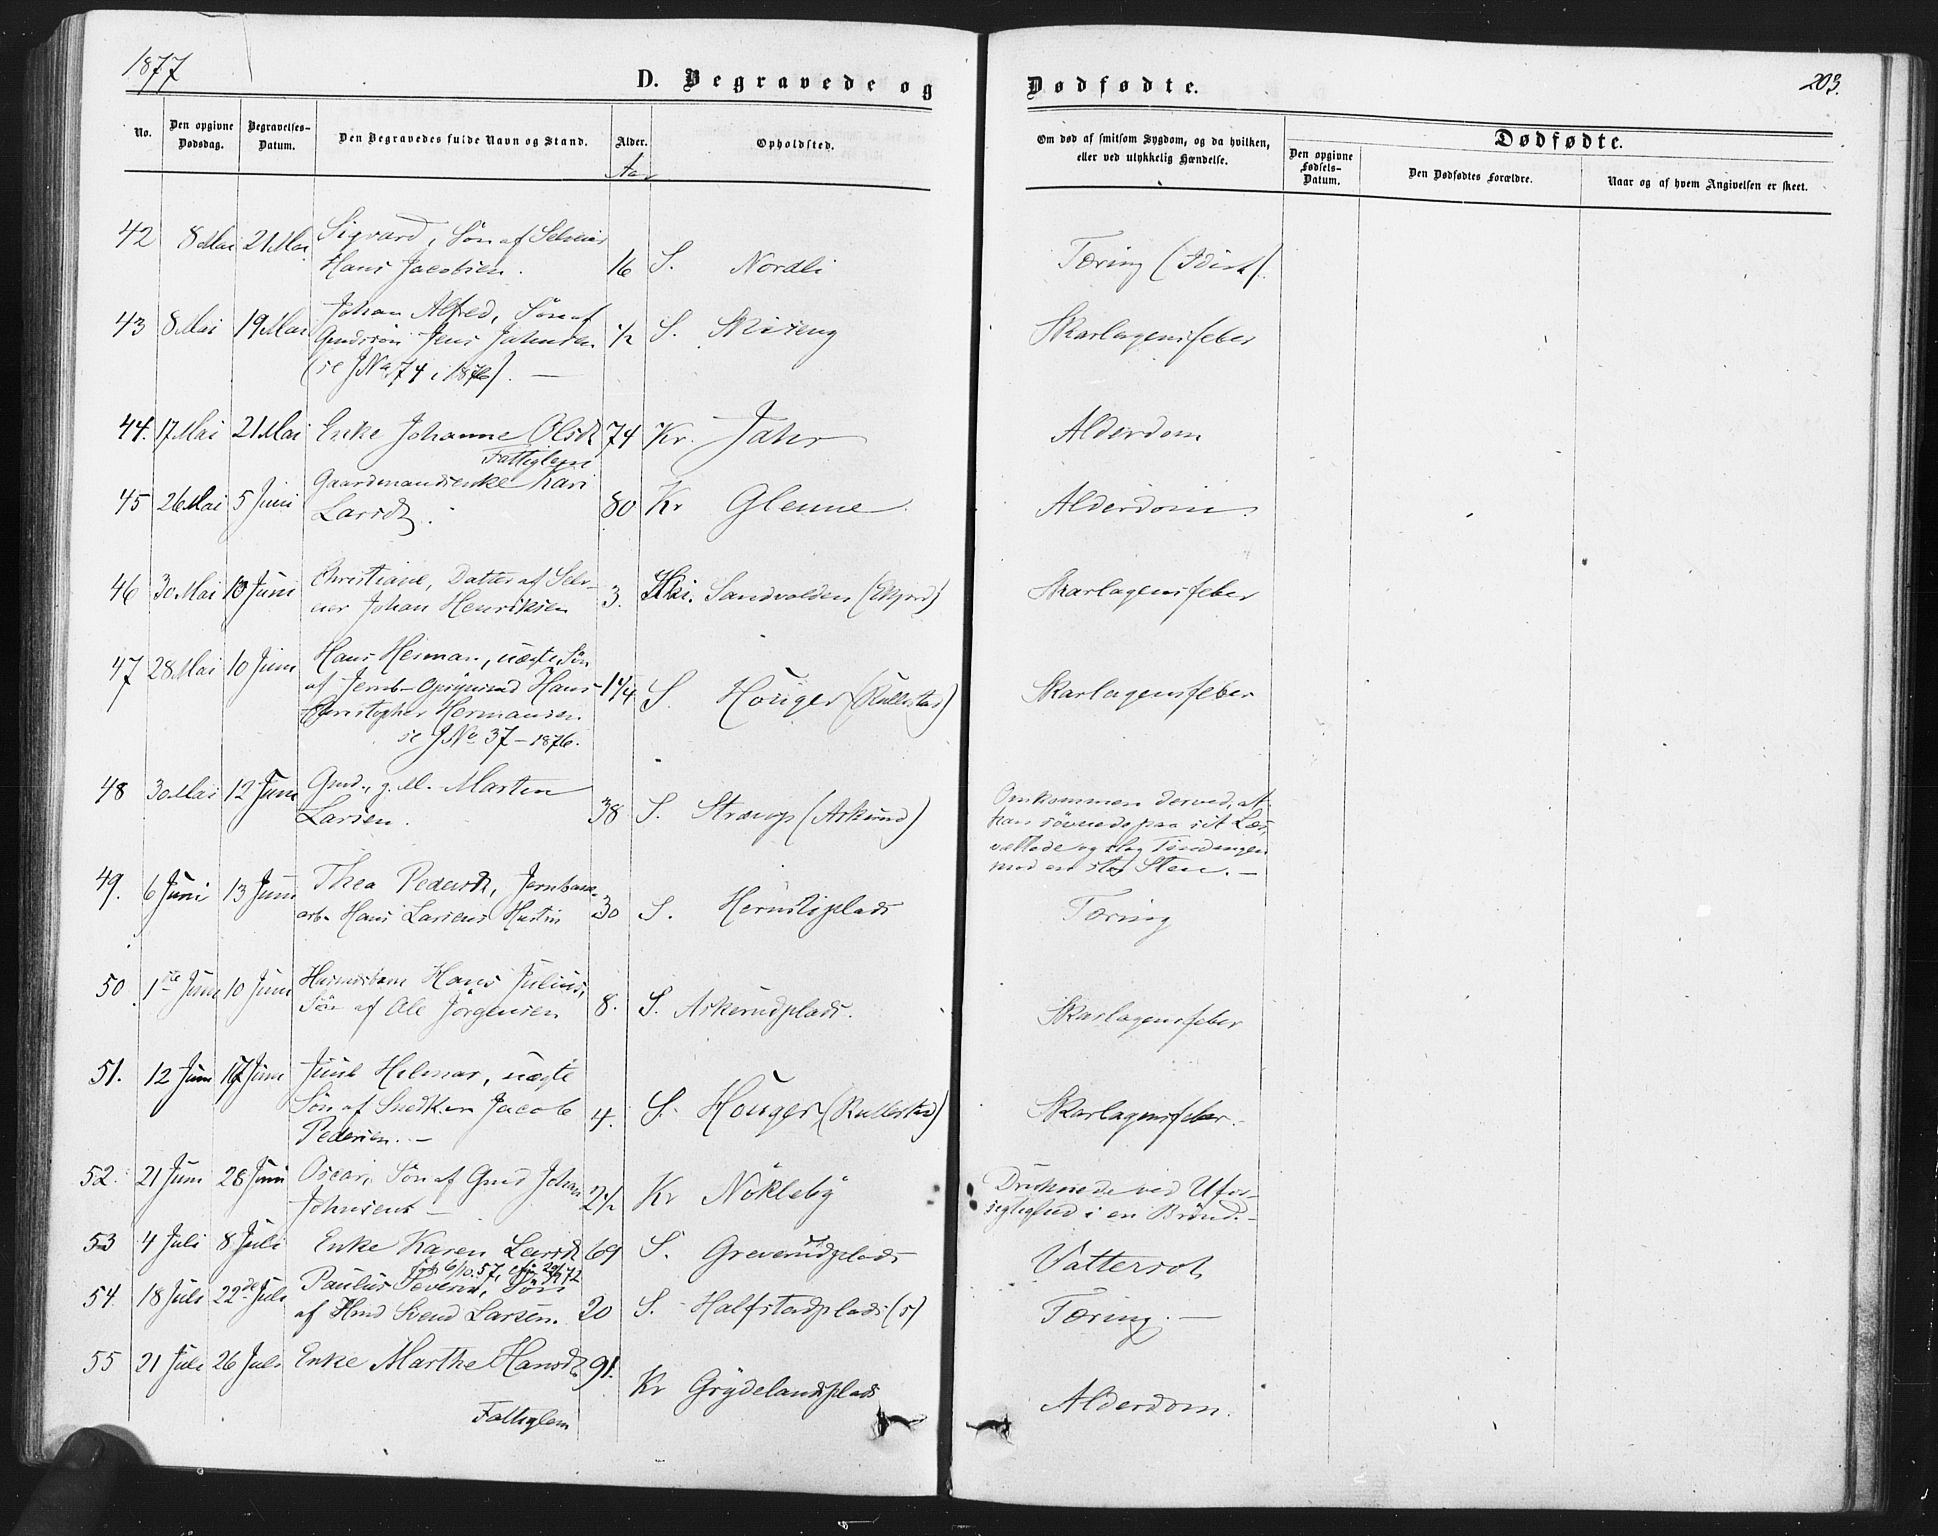 1877
D. Begravede og Dødfødte.
203.
No.
Den opgivne Dødsdag.
Begravelses-Datum.
Den Begravedes fulde Navn og Stand.
Alder.
Aar
Opholdsted.
Om død af smitsom Sygdom, og da hvilken,
eller ved ulykkelig Hændelse.
Dødfødte.
Den opgivne Fødsels-Datum.
Den Dødfødtes Forældre.
Naar og af hvem Angivelsen er skeet.
42 8 Mai 21 Mai Sigvard, Søn af Selveier
Hans Jacobsen. 16 S. Nordli Tæring
43 8 Mai 19 Mai Johan Alfred, Søn af
Gmdssøn Jens Johnsen ½ S. Skiseng Skarlagensfeber
(se JNo 74 i 1876). —
44. 17 Mai 21 Mai Enke Johanne Olsdt 74 Kr. Jahr Alderdom
Fattiglem
45 26 Mai 5 Juni Gaardmandsenke Kari
Larsdt. 80 Kr Glenne Alderdom.
46 30 Mai 13 Juni Christiane, Datter af Selv-
eier Johan Henriksen 3. Ski. Sandvolden Skarlagensfeber
47 28 Mai 10 Juni Hans Herman, uægte Søn
af Jernb-Opsynsmd Hans 1¼ S Houger (Rullestad) Skarlagensfeber
Christopher Hermansen
se JNo 37 – 1876.
48 30 Mai 12 Juni Gmd., g. M. Marten
Larsen. 38 S. Strærup (Askerud) Omkommen derved, at
han søvnede paa sit Læs,
væltede og slog Tindingen
mod en stor Sten. —
49. 6 Juni 13 Juni Thea Pedersdt, Jernbane-
arb. Hans Larsens Hustru 30 S. Hernesplads Tæring
50 1ste Juni 10 Juni Husmdsbarn Hans Julius,
Søn af Ole Jørgensen 8. S. Askerudplads. Skarlagensfeber
51. 12 Juni 17 Juni Juul Helmar, uægte
Søn af Snedker Jacob 4. S. Houger (Rullestad) Skarlagensfeber.
Pedersen. —
52. 21 Juni 28 Juni Oscar, Søn af Gmd Johan
Johnsens — 2½ Kr Nökleby Druknede ved Ufor-
sigtighed i en Brønd. —
53 4 Juli 8 Juli Enke Karen Larsdt 69 S. Greverudplads Vattersot
54. 18 Juli 22de Juli Paulus Severin, Søn
af Hmd Svend Larsen. 20 S. Halfstadplads (s) Tæring. —
55 21 Juli 26 Juli Enke Marthe Hansdt. 91. Kr Grydelandsplads Alderdom.
Fattiglem